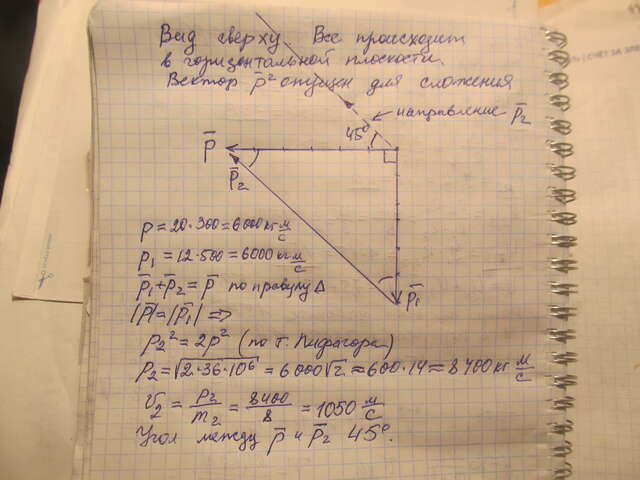 Вид сверху. Все происходит
в горизонтальной плоскости.
Вектор p̄₂ опущен для сложения
направление p̄₂
45°
p̄
p̄₂
p = 20·300 = 6000 кг м/с
p₁ = 12·500 = 6000 кг м/с
p̄₁ + p̄₂ = p̄ по правилу Δ
p̄₁
|p̄| = |p̄₁| ⇒
p₂² = 2p² (по т. Пифагора)
p₂ = √2·36·10⁶ = 6000√2 ≈ 600·14 ≈ 8400 кг м/с
v₂ = p₂/m₂ = 8400/8 = 1050 м/с
Угол между p̄ и p̄₂ 45°.